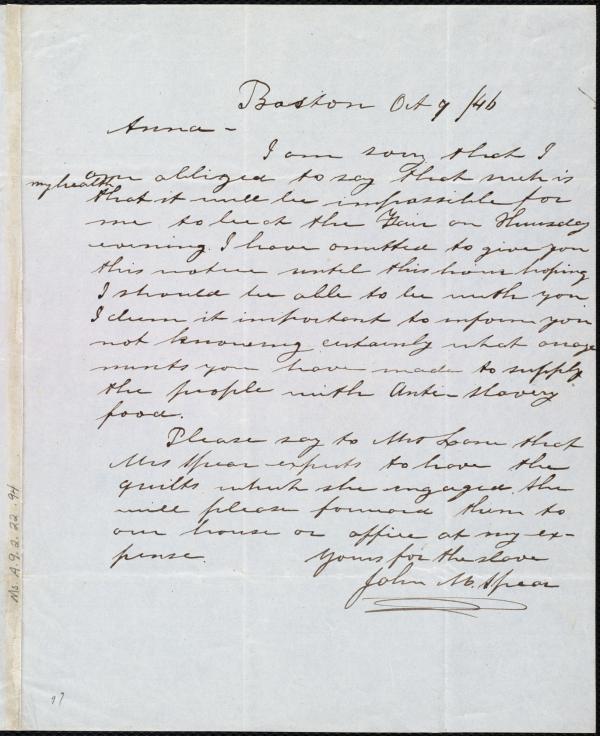 Boston Oct 9 /46
Anna -
I am sorry that I
am obliged to say that such is
my health
that it will be impossible for
me to be at the Fair on Thursday
evening. I have omitted to give you
this notice until this hour hoping
I should be able to be with you.
I deem it important to inform you
not knowing certainly what arrange
ments you have made to supply
the people with Anti-slavery
food.
Please say to Mrs that
Mrs Spear expects to have the
quilts which she engaged. She
will please forward them to
our house or office at my ex-
pense.
Yours for the slave
John M. Spear
Ms. A. 9. 2. 22. 94
97